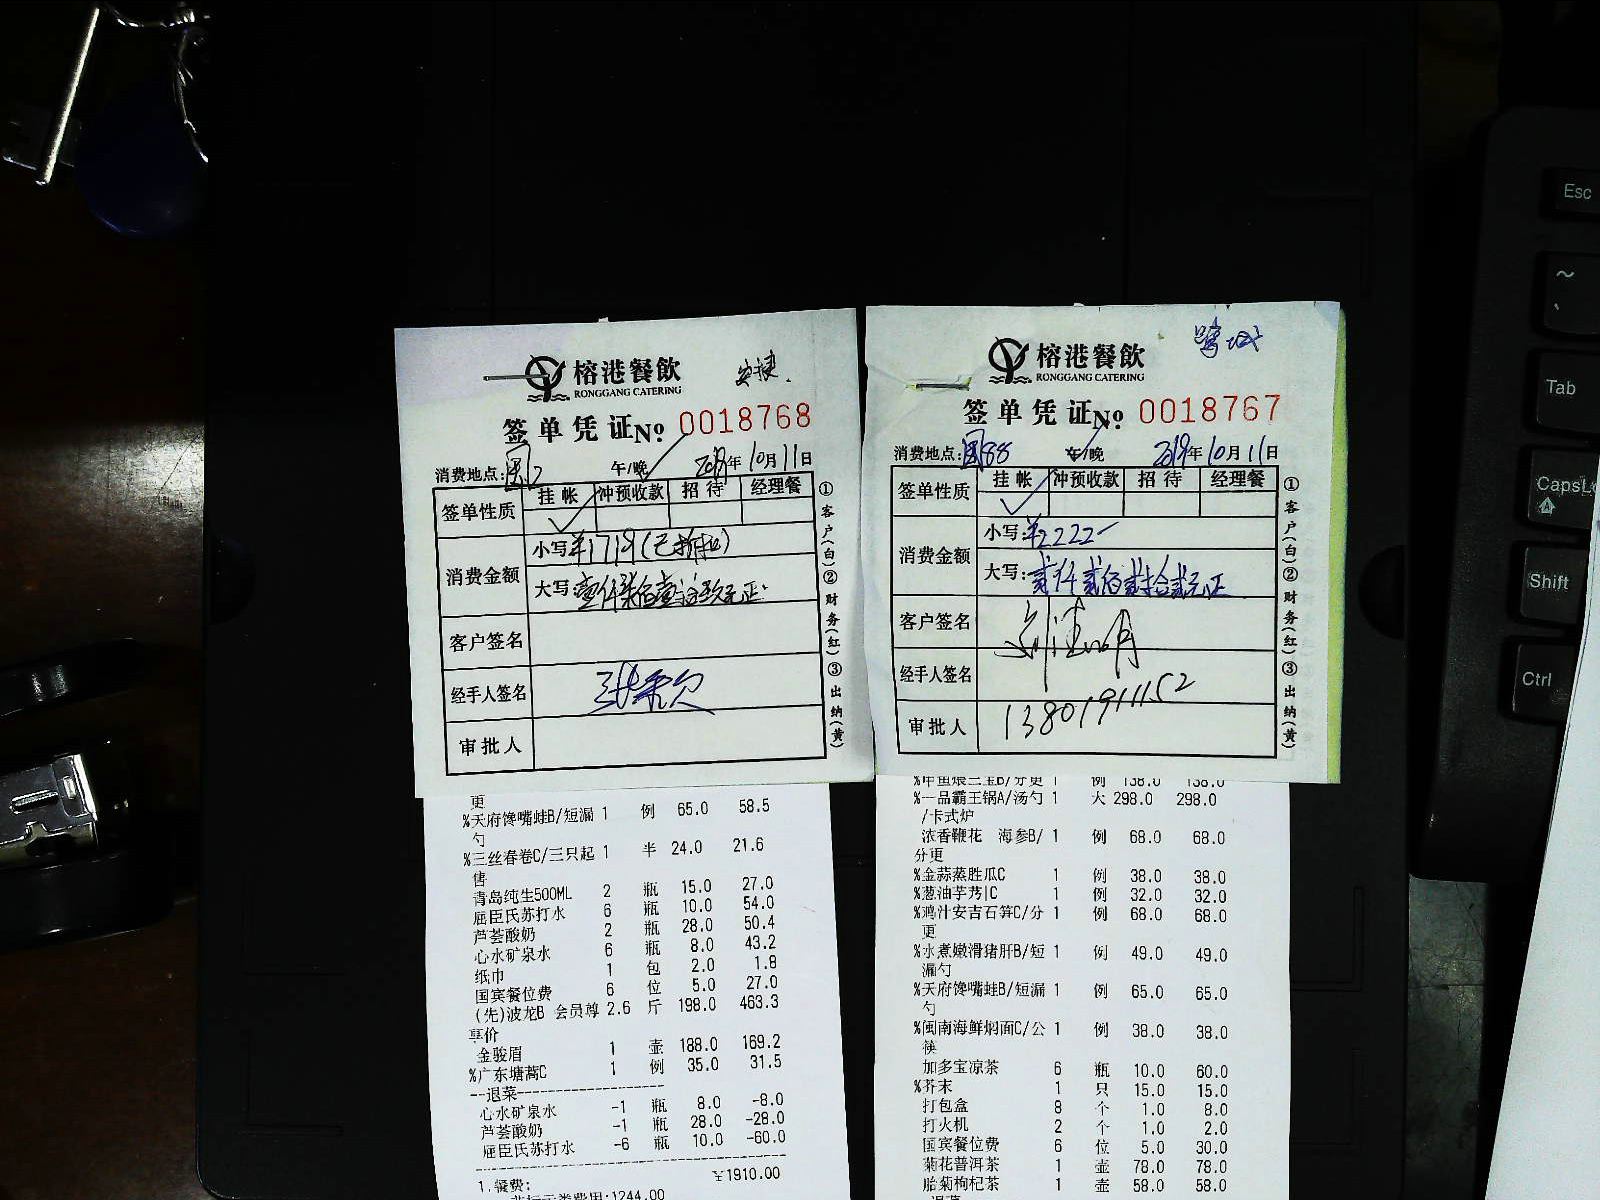 榕港餐飲
RONGGANG CATERING
签单凭证No. 0018768
消费地点:国2 午/晚 2019年10月11日
签单性质 挂帐 冲预收款 招待 经理餐
消费金额 小写:¥1719(已折扣)
大写:壹仟柒佰壹拾玖元正
客户签名
经手人签名
审批人
①客户(白)②财务(红)③出纳(黄)
更
%天府馋嘴蛙B/短漏 1 例 65.0 58.5
勺
%三丝春卷C/三只起 1 半 24.0 21.6
售
青岛纯生500ML 2 瓶 15.0 27.0
屈臣氏苏打水 6 瓶 10.0 54.0
芦荟酸奶 2 瓶 28.0 50.4
心水矿泉水 6 瓶 8.0 43.2
纸巾 1 包 2.0 1.8
国宾餐位费 6 位 5.0 27.0
(先)波龙B 会员尊 2.6 斤 198.0 463.3
享价
金骏眉 1 壶 188.0 169.2
%广东塘蒿C 1 例 35.0 31.5
--退菜--------------------
心水矿泉水 -1 瓶 8.0 -8.0
芦荟酸奶 -1 瓶 28.0 -28.0
屈臣氏苏打水 -6 瓶 10.0 -60.0
1.餐费: ¥1910.00
类费用:1244.00
榕港餐飲
RONGGANG CATERING
签单凭证No. 0018767
消费地点:国88 午/晚 2019年10月11日
签单性质 挂帐 冲预收款 招待 经理餐
消费金额 小写:¥2222-
大写:贰仟贰佰贰拾贰元正
客户签名
经手人签名
审批人 13801911152
①客户(白)②财务(红)③出纳(黄)
%甲鱼煨三宝B/分更 1 例 138.0 138.0
%一品霸王锅A/汤勺 1 大 298.0 298.0
/卡式炉
浓香鞭花 海参B/ 1 例 68.0 68.0
分更
%金蒜蒸胜瓜C 1 例 38.0 38.0
%葱油芋艿|C 1 例 32.0 32.0
%鸿汁安吉石笋C/分 1 例 68.0 68.0
更
%水煮嫩滑猪肝B/短 1 例 49.0 49.0
漏勺
%天府馋嘴蛙B/短漏 1 例 65.0 65.0
勺
%闽南海鲜焖面C/公 1 例 38.0 38.0
筷
加多宝凉茶 6 瓶 10.0 60.0
%芥末 1 只 15.0 15.0
打包盒 8 个 1.0 8.0
打火机 2 个 1.0 2.0
国宾餐位费 6 位 5.0 30.0
菊花普洱茶 1 壶 78.0 78.0
胎菊枸杞茶 1 壶 58.0 58.0
退菜
Esc
~
Tab
CapsLo
Shift
Ctrl